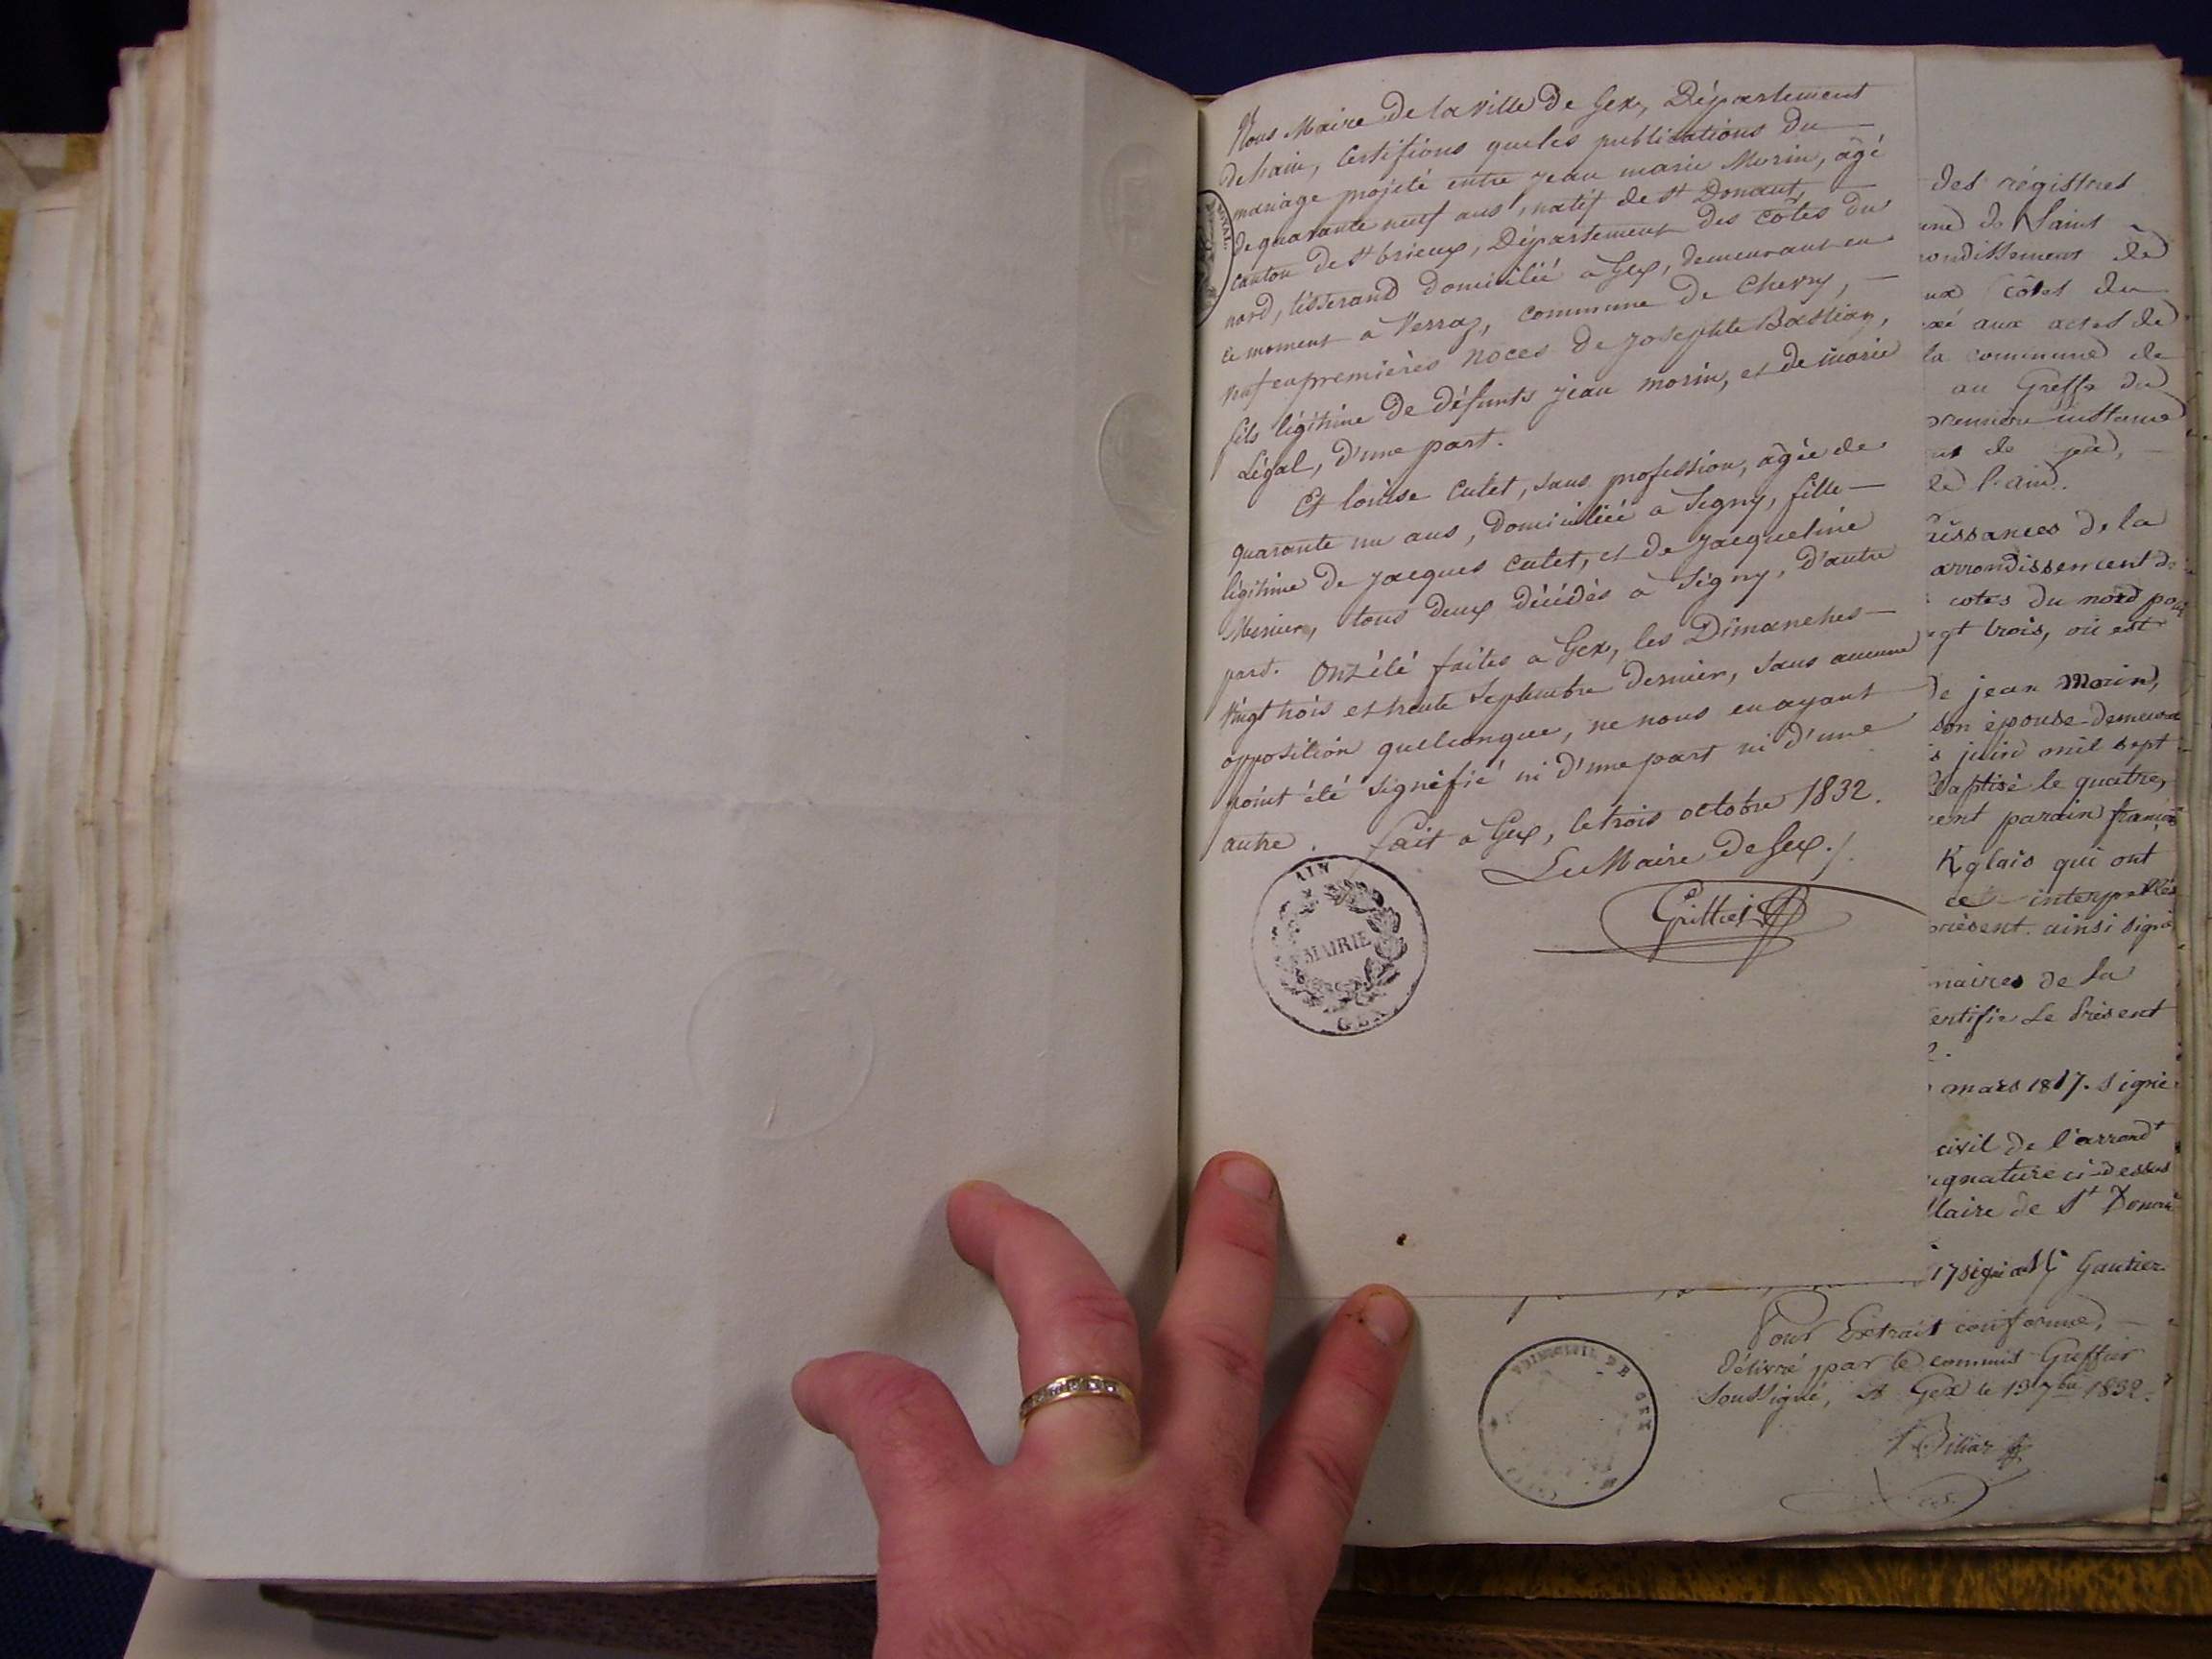 Nous Maire de la ville de Gex, Département
de l'ain, Certifions que les publications du
mariage projeté entre jean marie Morin, âgé
de quarante neuf ans, natif de St Donant,
canton de St brieux, Département des côtes du
nord, tisserand domicilié à Gex, demeurant en
ce moment à Verraz, commune de Chevry,
veuf en premières noces de josephte Bastian,
fils légitime de défunts jean morin, et de marie
Légal, d'une part.
Et louise Cutet, sans profession, agée de
quarante un ans, domiciliée à Segny, fille
légitime de jacques Cutet, et de jacqueline
tous deux décédés à Ségny, d'autre
part. Ont été faites à Gex, les Dimanches
vingt trois et trente Septembre dernier, sans aucune
opposition quelconque, ne nous en ayant
point été signifié ni d'une part ni d'une
autre. fait à Gex, le trois octobre 1832.
Le Maire de Gex./.
AIN
MAIRIE
GEX
ROYAL
des régistres
de Saint
ondissement de
ux côtes du
xé aux actes de
la commune de
au Greffe du
premiere instance
de
de l'ain.
issances de la
arrondissement de
cotes du nord pour
gt trois, où est
de jean Morin,
son épouse demeurant
juin mil sept
Baptisé le quatre,
ent parain françois
qui ont
ce interpellés
présent. ainsi signé
naires de la
ertifie Le présent
2.
mars 1817. signé
civil de l'arrondt
ignature ci-dessus
Maire de St Donan
17 signé Gautier
Pour Extrait conforme,
délivré par le commis Greffier
Soussigné, A Gex le 19 7bre 1832.
DE GEX